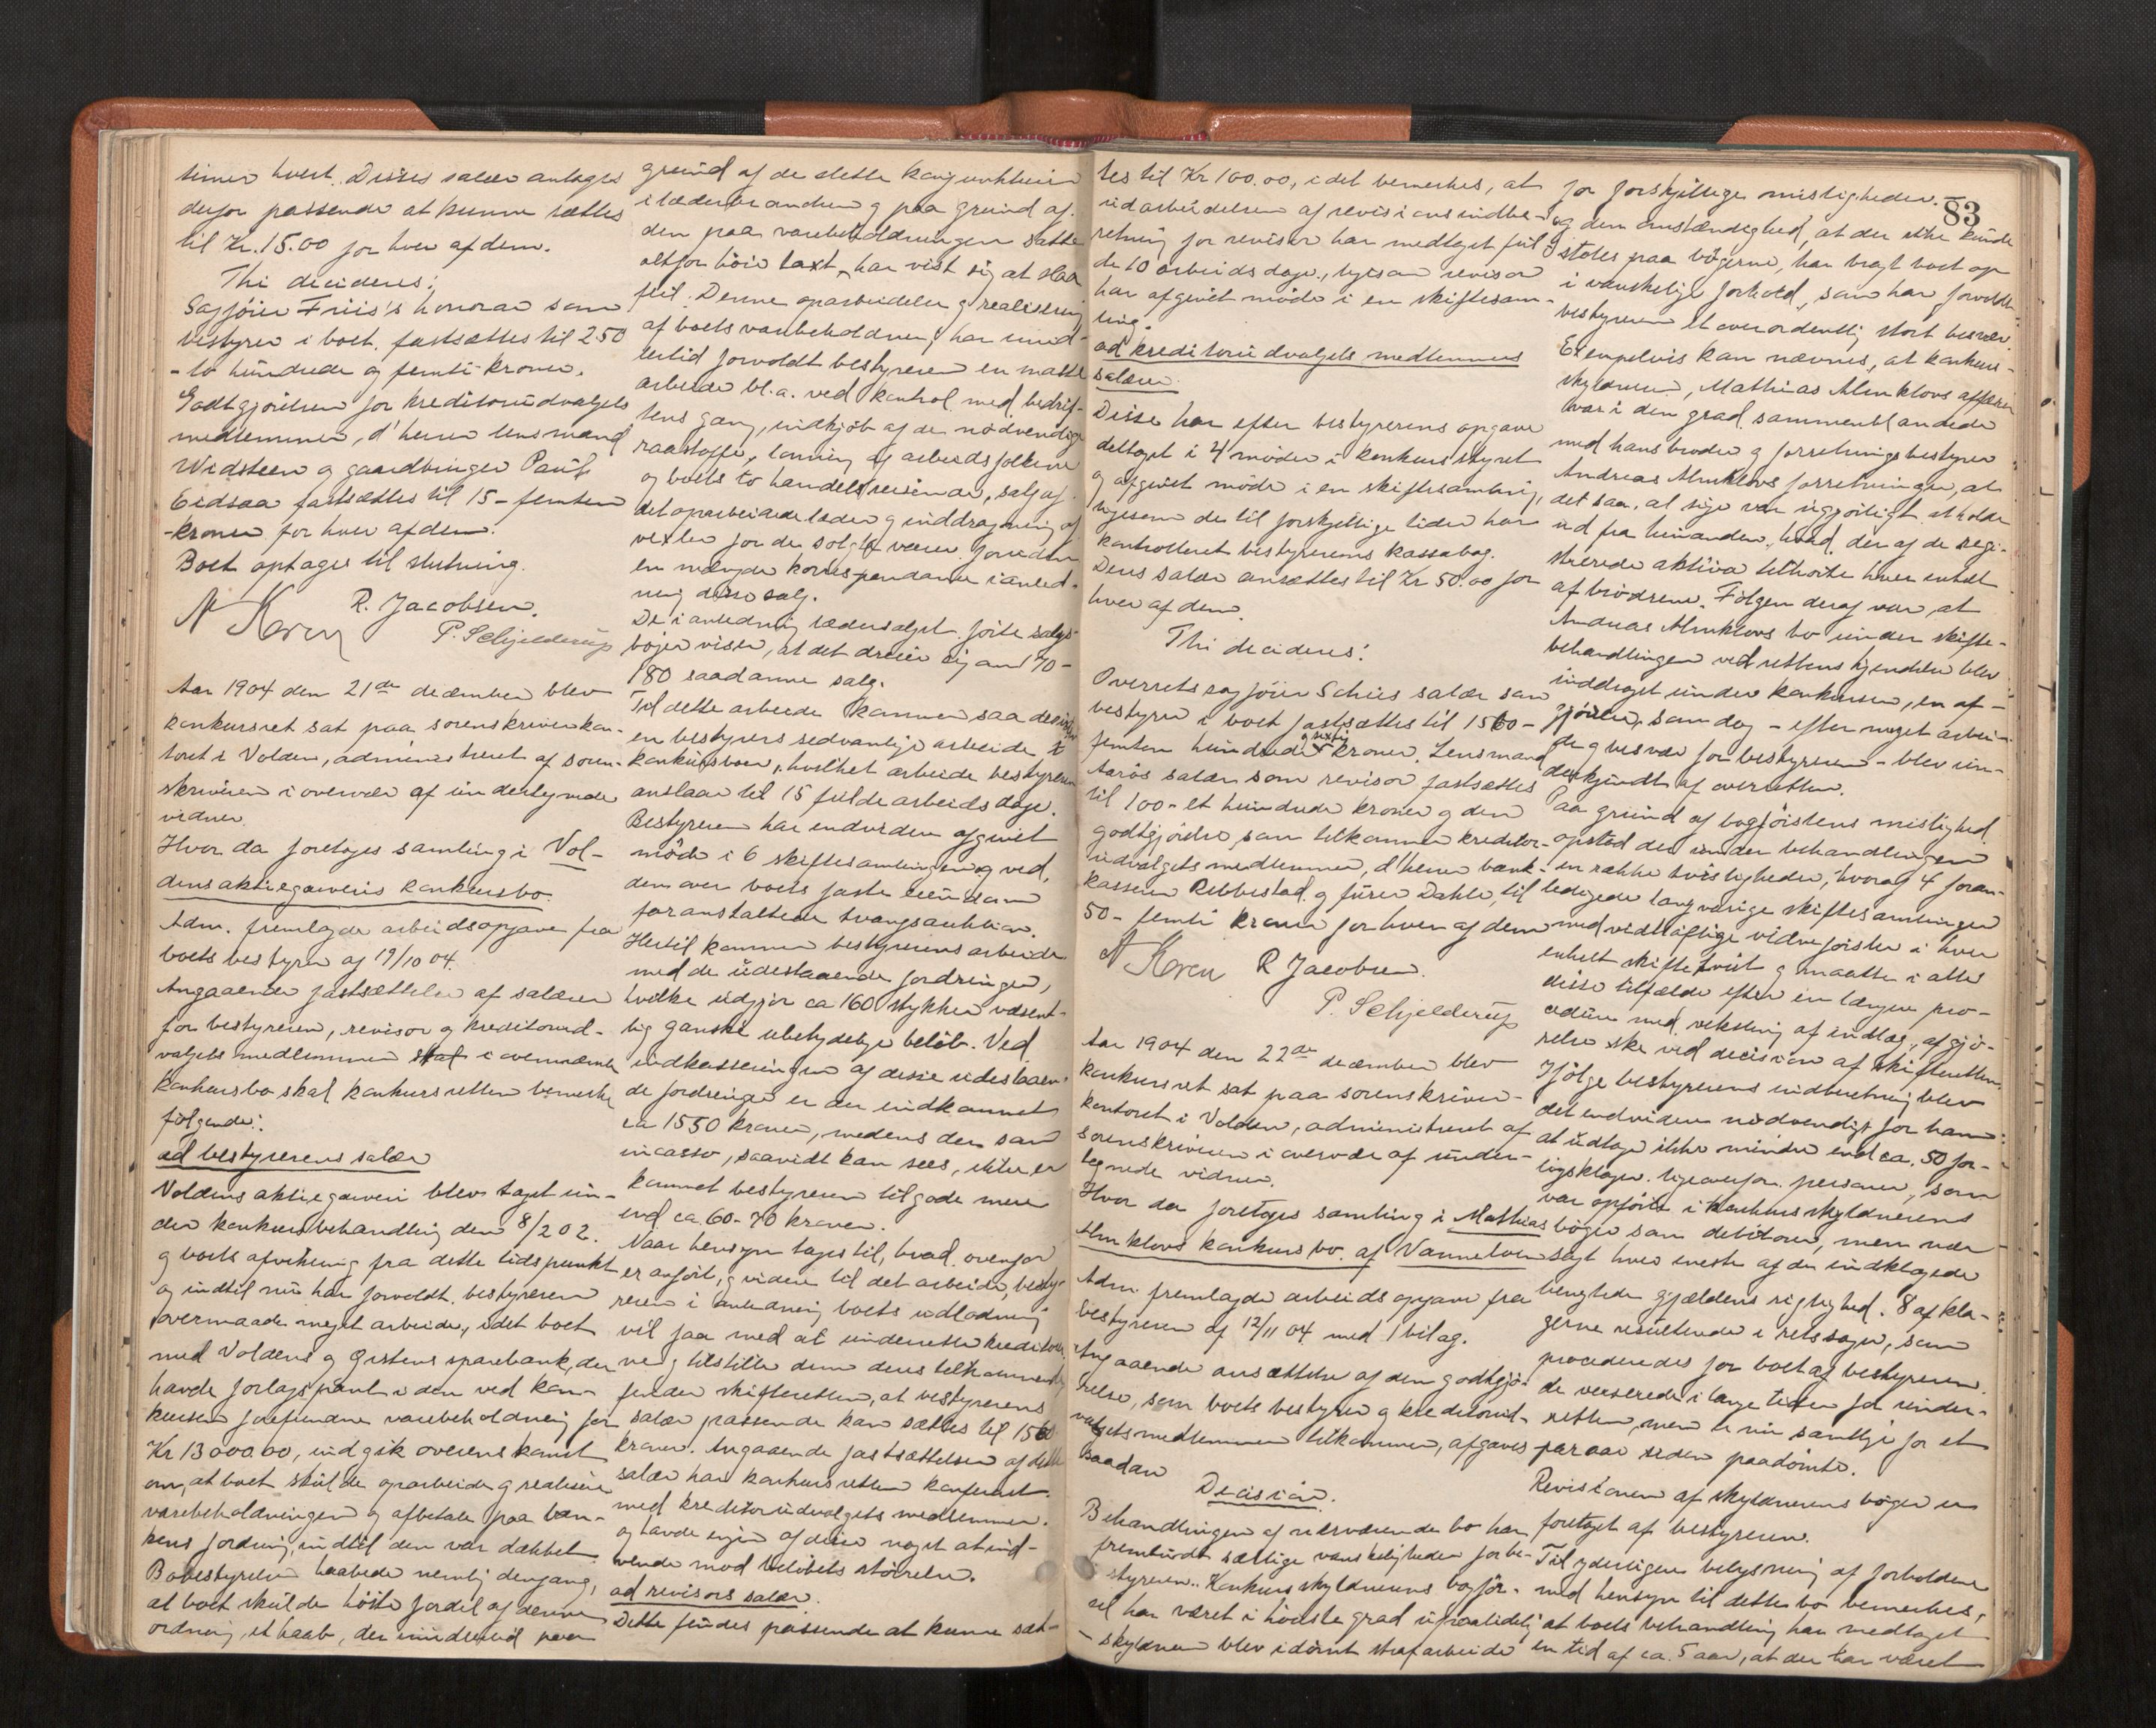 timer hvert. Disses salær antages
derfor passende at kunne sættes
til Kr. 15.00 for hver af dem.
Thi decideres:
Sagfører Friis's honorar som
bestyrer i boet fastsættes til 250
- to hundrede og femti - kroner.
Godtgjörelsen for kreditorudvalgets
medlemmer, d'herrer lensmand
Widsteen og gaardbruger Paul
Eidsaa fastsættes til 15 - femten
- kroner for hver af dem.
Boet optages til slutning.
R. Jacobsen.
P. Schjelderup
Aar 1904 den 21de december blev
konkursret sat paa sorenskriverkon-
toret i Volden, administreret af soren-
skriveren i overvær af undertegnede
vidner.
Hvor da foretoges samling i Vol-
dens aktiegarveris konkursbo.
Adm. fremlagde arbeidsopgave fra
boets bestyrer af 19/10 04.
Angaaende fastsættelse af salærer
for bestyreren, revisor og kreditorud-
valgets medlemmer skal i ovennævnte
konkursbo skal konkursretten bemerke
følgende:
ad bestyrerens salær
Voldens aktiegarveri blev taget un-
der konkursbehandling den 8/2 02.
og boets afvikling fra dette tidspunkt
og indtil nu har forvoldt bestyreren
overmaade meget arbeide, idet boet
med Voldens og Ørstens sparebank, der
havde forlagspant i den ved kon-
kursen forefundne varebeholdning for
Kr 13000.00, indgik overenskomst
om, at boet skulde oparbeide og realisere
varebeholdningen og afbetale paa ban-
kens fordring, indtil den var dækket.
Bobestyrelsen haabede nemlig dengang,
at boet skulde höste fordel af denne
ordning, et haab, der imidlertid paa
grund af de slette konjunkturer
i læderbranchen og paa grund af
den paa varebeholdningen satte
altfor höie taxt, har vist sig at slaa
feil. Denne oparbeidelse og realisering
af boets varebeholdning har imid-
lertid forvoldt bestyreren en masse
arbeide bl.a. ved kontrol med bedrif-
tens gang, indkjöb af de nödvendige
raastoffe, lønning af arbeidsfolkene
og boets to handelsreisende, salg af
det oparbeidede læder og inddragning af
vexler for de solgte varer foruden
en mængde korrespondance i anled-
ning disse salg.
De i anledning lædersalget förte salgs-
böger viser, at det dreier sig om 170-
180 saadanne salg.
Til dette arbeide kommer saa desuden
en bestyrers sedvanlige arbeide i
konkursboer, hvilket arbeide bestyreren
anslaar til 15 fulde arbeidsdage.
Bestyreren har endvidere afgivet
möde i 6 skiftesamlinger og ved
den over boets faste eiendom
foranstaltede tvangsauktion.
Hertil kommer bestyrerens arbeide
med de udestaaende fordringer,
hvilke udgjør ca 160 stykker væsent-
lig ganske ubetydelige belöb. Ved
indkasseringen af disse udestaaen-
de fordringer er der indkommet
ca 1550 kroner, medens der som
incasso, saavidt kan sees, ikke er
kommet bestyreren tilgode mere
end ca. 60-70 kroner.
Naar hensyn tages til, hvad ovenfor
er anfört, og videre til det arbeide, besty-
reren i anledning boets udlodning
vil faa med at underrette kredito-
rer og tilstille dem deres tilkommende
finder skifteretten, at bestyrerens
salær passende kan sættes til 1560
kroner. Angaaende fastsættelsen af dette
salær har konkursretten konfereret
med kreditorudvalgets medlemmer
og havde ingen af disse noget at ind-
vende mod belöbets störrelse.
ad revisors salær.
Dette findes passende at kunne sæt-
83
tes til Kr 100.00, idet bemerkes, at
udarbeidelsen af revisionsindbe-
retning for revisor har medtaget ful-
de 10 arbeidsdage, ligesom revisor
har afgivet möde i en skiftesam-
ling.
ad kreditorudvalgets medlemmers
salærer.
Disse har efter bestyrerens opgave
deltaget i 4 möder i konkursstyret
og afgivet möde i en skiftesamling,
ligesom de til forskjellige tider har
kontrolleret bestyrerens kassabog.
Deres salær ansættes til Kr 50.00 for
hver af dem.
Thi decideres:
Overretssagförer Schies salær som
bestyrer i boet fastsættes til 1560 -
femten hundrede og sexti kroner. Lensmand
Aarös salær som revisor fastsættes
til 100 - et hundrede kroner og den
godtgjörelse som tilkommer kreditor-
udvalgets medlemmer, d'herrer bank-
kasserer Ribbestad og furer Dahle, til
50 - femti kroner for hver af dem
R Jacobsen.
P. Schjelderup
Aar 1904 den 22de december blev
konkursret sat paa sorenskriver-
kontoret i Volden, administreret af
sorenskriveren i overvær af under-
tegnede vidner.
Hvor da foretoges samling i Mathias
Almklovs konkursbo af Vannelven
Adm fremlagde arbeidsopgave fra
bestyreren af 12/11 04 med 1 bilag.
Angaaende ansættelse af den godtgjö-
relse, som boets bestyrer og kreditorud-
valgets medlemmer tilkommer, afgaves
saadan
Decision.
Behandlingen af nærværende bo har
frembudt særlige vanskeligheder for be-
styreren. Konkursskyldnerens bogför-
sel har været i höieste grad upaalidelig
- skyldneren blev idömt strafarbeide
for forskjellige misligheder. -
og den omstændighed, at der ikke kunde
stoles paa bögerne, har bragt boet op
i vanskelige forhold, som har forvoldt
bestyreren et overordentlig stort besvær.
Exempelvis kan nævnes, at konkurs-
skyldneren, Mathias Almklovs affærer
var i den grad sammenblandede
med hans broder og forretningsbestyrer
Andreas Almklovs forretninger, at
det saa at sige var ugjörligt at holde
ud fra hinanden, hvad der af de regi-
strerede aktiva tilhørte hver enkelt
af brödrene. Følgen deraf var, at
Andreas Almklovs bo under skifte-
behandlingen ved rettens kjendelse blev
inddraget under konkursen, en af-
gjörelse, som dog - efter meget arbei-
de og besvær for bestyreren - blev un-
derkjendt af overretten.
Paa grund af bogförselens mislighed
opstod der under behandlingen
en række tvistigheder, hvoraf 4 foran-
ledigede langvarige skiftesamlinger
med vidtløftige vidneførsler i hver
enkelt skiftetvist og maatte i alle
disse tilfælde efter en længere pro-
cedure med veksling af indlæg, afgjö-
relse ske ved decision af skifteretten.
Ifölge bestyrerens indberetning blev
det endvidere nödvendigt for ham
at udtage ikke mindre end ca. 50 for-
ligsklager ligeoverfor personer, som
var opført i konkursskyldnerens
böger som debitorer, men nær
sagt hver eneste af de indklagede
benegtede gjældens rigtighed. 8 af kla-
gerne resulterede i retssager, som
procederedes for boet af bestyreren.
de verserede i lange tider for under-
retten, men er nu samtlige for et
par aar siden paadömte.
Revisionen af skyldnerens böger er
foretaget af bestyreren.
Til yderligere belysning af forholdene
med hensyn til dette bo bemerkes,
at boets behandling har medtaget
en tid af ca. 5 aar, at der har været